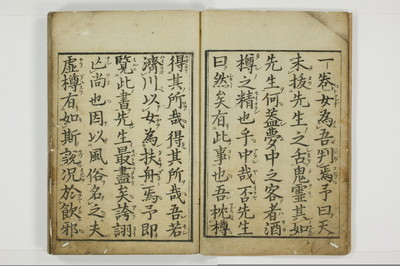 一卷女為吾判焉予曰天
未抜先生之舌鬼靈其如
先生何蓋夢中之客者酒
樽之精也乎哉否先生
曰然矣有此事也吾枕樽
得其所哉得其所哉吾若
濟川以女為扶舟焉予即
覽此書先生最盡矣誇詡
也尚也因以風俗名之夫
虛樽有如斯說況於飲邪